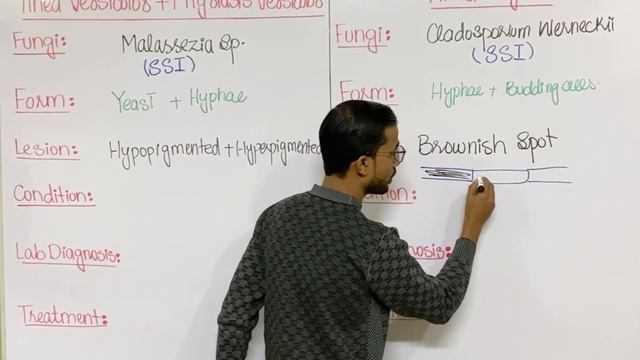 Tinea Versicolor + Pityriasis Versicolor
Fungi: Malassezia Sp.
(SSI)
Form: Yeast + Hyphae
Lesion: Hypopigmented + Hyperpigmented
Condition:
Lab Diagnosis:
Treatment:
Fungi: Cladosporium Werneckii
(SSI)
Form: Hyphae + Budding cells.
Brownish Spot